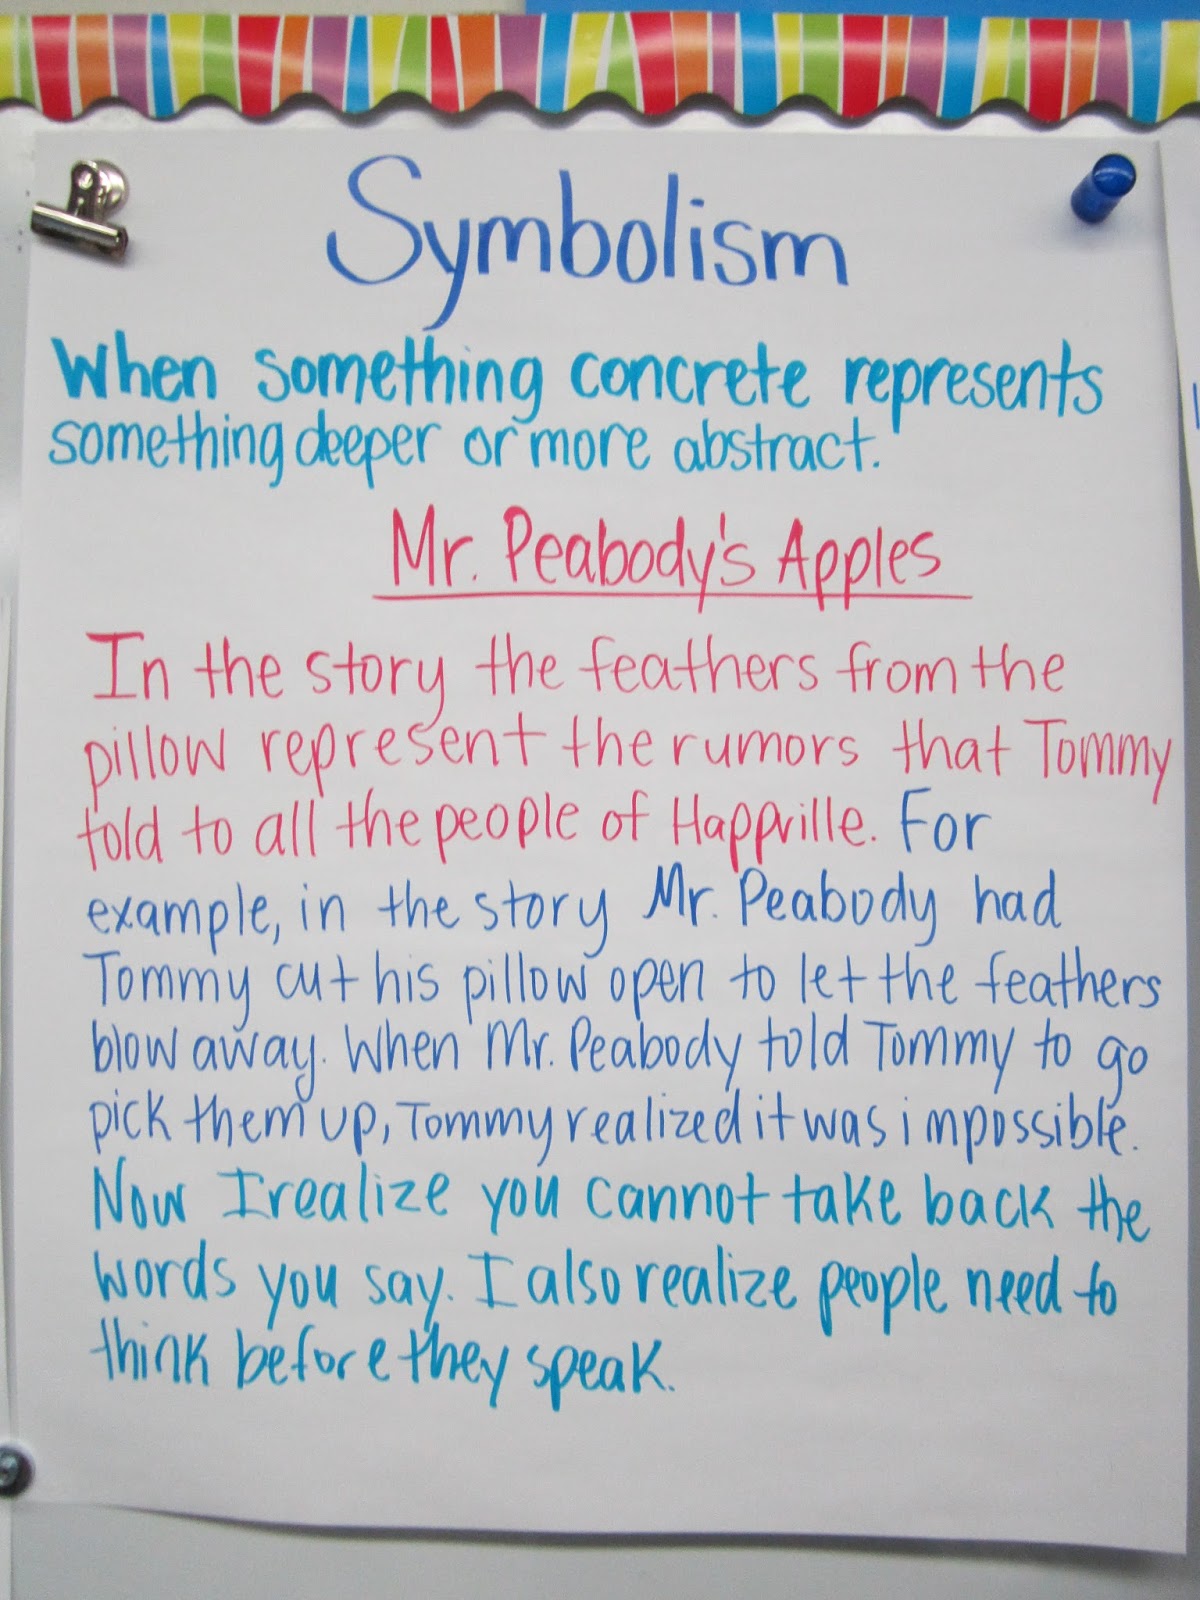 Symbolism
When something concrete represents
something deeper or more abstract.
Mr. Peabody's Apples
In the story the feathers from the
pillow represent the rumors that Tommy
told to all the people of Happville. For
example, in the story Mr. Peabody had
Tommy cut his pillow open to let the feathers
blow away. When Mr. Peabody told Tommy to go
pick them up, Tommy realized it was impossible.
Now I realize you cannot take back the
words you say. I also realize people need to
think before they speak.